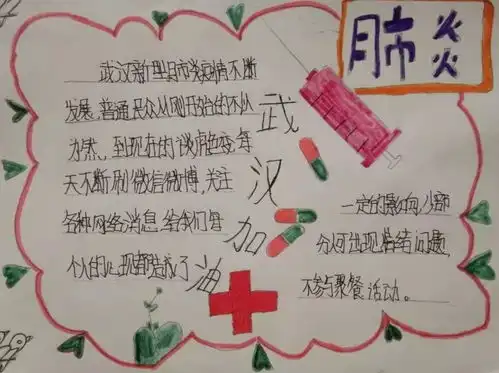 肺炎
武汉新型肺炎疫情不断
发展,普通民众从刚开始的不以
为然,到现在的谈虎色变,每
天不断刷微信微博,关注
各种网络消息,给我们每
个人的心理都造成了
武
汉
加
油
一定的影响,少部
分人可出现情绪问题,
不参与聚餐活动。